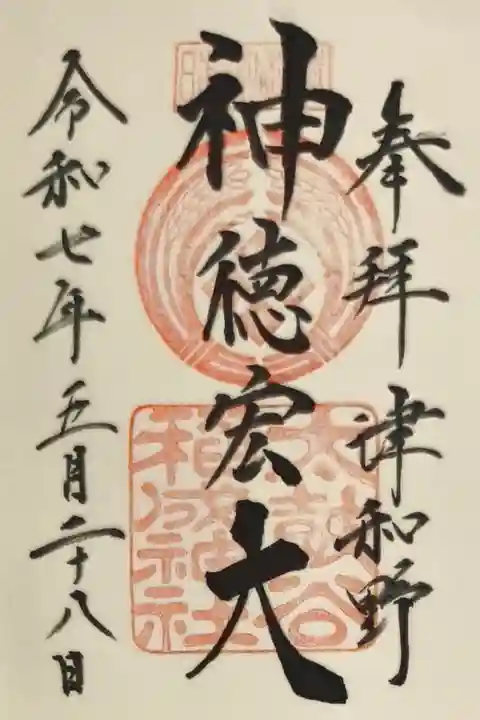 奉拝 津和野
神徳宏大
太皷谷
稲成神社
令和七年五月二十八日